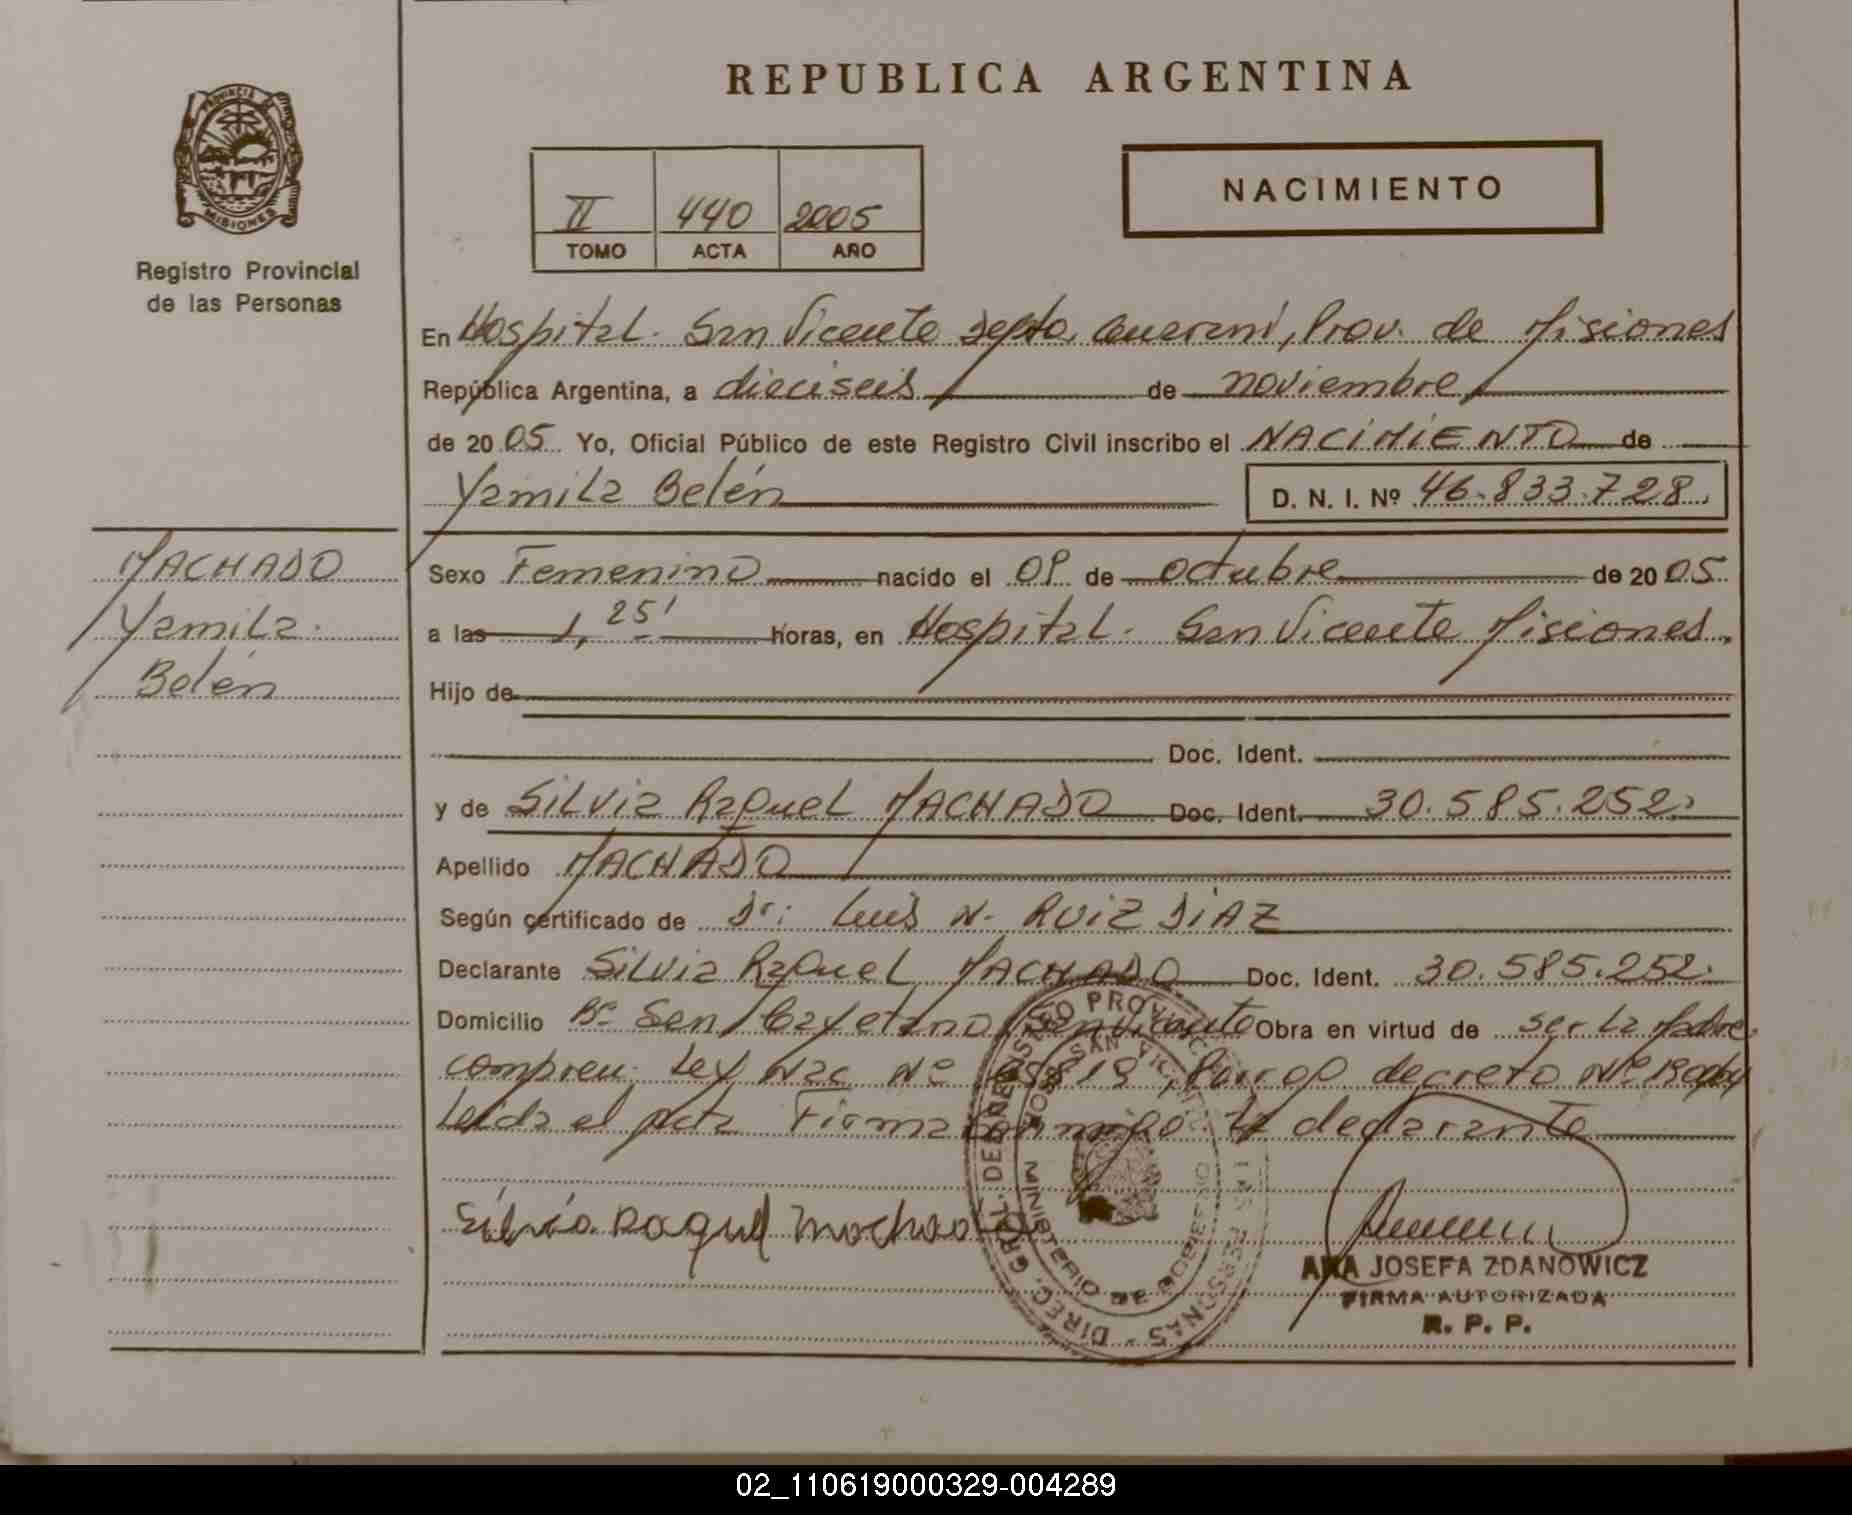 REPUBLICA ARGENTINA
PROVINCIA DE
MISIONES
Registro Provincial
de las Personas
II 440 2005
TOMO ACTA AÑO
NACIMIENTO
En Hospital. San Vicente Depto. Guarani, Prov. de Misiones
República Argentina, a dieciseis de noviembre
de 20 05 Yo, Oficial Público de este Registro Civil inscribo el NACIMIENTO de
Yamila Belén D. N. I. Nº 46.833.728.
MACHADO
Yamila.
Belén
Sexo Femenino nacido el 09 de octubre de 20 05
a las 1, 25' horas, en Hospital. San Vicente Misiones.
Hijo de
Doc. Ident.
y de Silvia Raquel MACHADO Doc. Ident. 30.585.252.
Apellido MACHADO
Según certificado de Dr: Luis N. RUIZ DIAZ
Declarante Silvia Raquel MACHADO Doc. Ident. 30.585.252.
Domicilio Bº San Cayetano San Vicente Obra en virtud de ser la Madre
compren. Ley Nac Nº decreto Nº
Leida el acta Firma conmigo la declarante
Silvia Raquel Machado
DIREC. GRAL. DEL REGISTRO PROVINCIAL DE LAS PERSONAS
HOSP. SAN VICENTE
MINISTERIO DE GOBIERNO
ANA JOSEFA ZDANOWICZ
FIRMA AUTORIZADA
R. P. P.
02_110619000329-004289